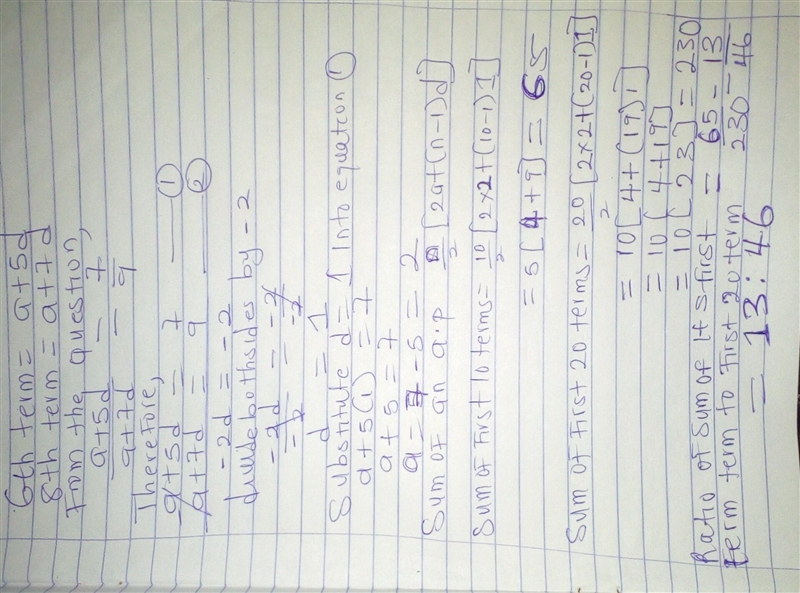 6th term = a+5d
8th term = a+7d
From the question,
a+5d = 7
a+7d = 9
Therefore,
a+5d = 7 — ①
a+7d = 9 — ②
-2d = -2
divide bothsides by -2
-2d = -2
-2 -2
d = 1
Substitute d = 1 Into equation ①
a+5(1) = 7
a+5 = 7
a = 7-5 = 2
Sum of an a.p n/2 [2a+(n-1)d]
Sum of First 10 terms = 10/2 [2×2+(10-1)1]
= 5[4+9] = 65
Sum of First 20 terms = 20/2 [2×2+(20-1)1]
= 10[4+(19)1]
= 10[4+19]
= 10[23] = 230
Ratio of Sum of It s first = 65 - 13
term term to First 20 term 230 - 46
= 13:46